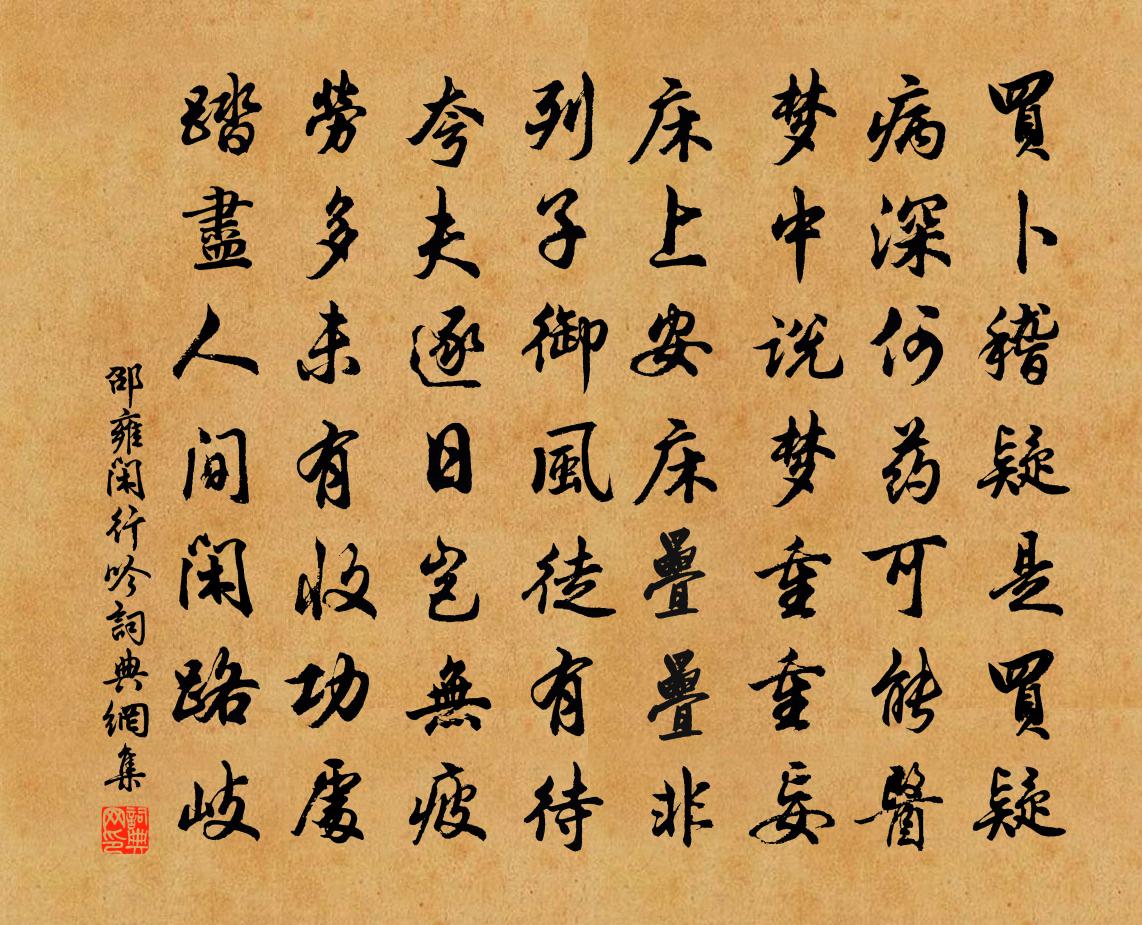 買卜稽疑是買疑
病深何药可能醫
梦中说梦重重妄
床上安床疊疊非
列子御風徒有待
夸夫逐日岂無疲
劳多未有收功處
踏盡人间闲路岐
邵雍闲行吟詞典網集
詞典网印